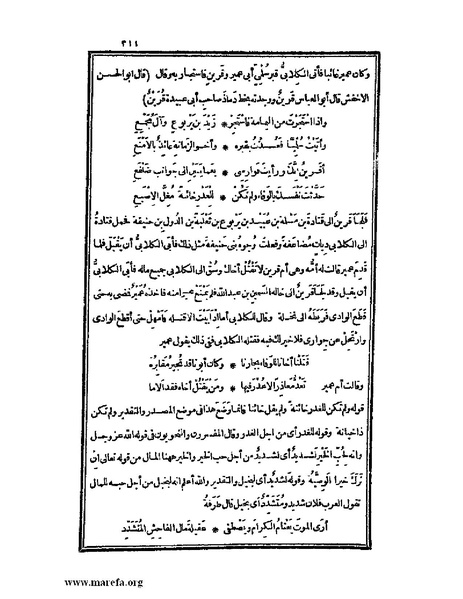 ٣١٤
وكان عمير غائبا فأتى الكلابيُّ قبر سُلْمِيٍّ أبي عمير وقرين فاستجار به وقال (قال أبو الحسن
الاخفش قال أبو العباس قَرِينٌ ووجدته بخط دَماذ صاحب أبي عبيدة قُرَيْنٌ)
واذا استَجَرْتَ من اليمامة فاستَجِرْ * زيدَ بنَ يربوعٍ وآلَ مُجَمِّعِ
وأتيتُ سُلْمِيًّا فعُذْتُ بقبره * وأخو الزمانة عائذٌ بالأمنَعِ
أقرينُ إنكَ لو رأيتَ فوارسي * بعمايتين الى جوانب ضَلْفَعِ
حدَّثتَ نفسَك بالوفاء ولم تكن * للغدر خائنةً مُغِلَّ الإصبعِ
فلجأ قرينٌ الى قتادة بن مسلمة بن عُبيد بن يربوع بن ثعلبة بن الدول بن حنيفة فحمل قتادةُ
الى الكلابي دياتٍ مُضاعفةً وفعلت وُجوهُ بني حنيفة مثل ذلك فأبى الكلابيُّ أن يَقبَلَ فلما
قدم عمير قالت له أُمُّه وهي أم قرين لا تقتُلْ أخاك وسُقْ الى الكلابي جميع ماله فأبى الكلابيُّ
أن يقبل وقد لجأ قرينٌ الى خاله السمين بن عبد الله فلم يمنع عميرا منه فأخذه عُميرٌ فمضى به حتى
قطع الوادي فربطه الى نخلة وقال للكلابي أما إذ أبيتَ الا قتله فأمهِلْ حتى أقطع الوادي
وارتحِلْ عن جواري فلا خير لك فيه فقتله الكلابي ففي ذلك يقول عمير
قتلنا أخانا للوفاء بجارنا * وكان أبونا قد تُجير مقابرُه
وقالت أم عمير تعُدُّ معاذرًا لا عُذرَ فيها * ومن يقتُلْ أخاه فقد ألاما
قوله ولم تكن للغدر خائنة ولم يقل خائنا فانما وضع هذا في موضع المصدر والتقدير ولم تكن
ذا خيانة وقوله للغدر أي من أجل الغدر وقال المفسرون والنحويون في قول الله عز وجل
وإنه لِحُبِّ الخير لشديدٌ أي لشديد من أجل حب الخير والخير ههنا المال من قوله تعالى ان
ترك خيرا الوصيَّةُ وقوله لشديد أي لبخيل والتقدير والله أعلم انه لبخيل من أجل حبه للمال
تقول العرب فلان شديد ومتشدِّد أي بخيل قال طرفة
أرى الموتَ يعتامُ الكرامَ ويصطفي * عقيلةَ مال الفاحش المُتشدِّدِ
www.marefa.org